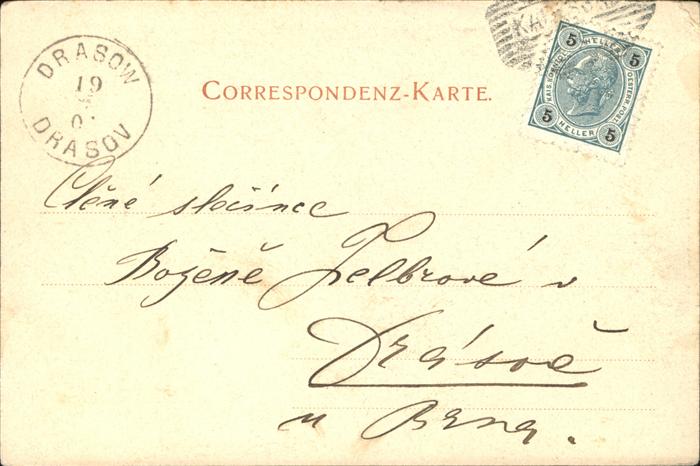 DRASOW
19
DRASOV
CORRESPONDENZ-KARTE.
5 HELLER 5
KAIS. KÖNIGL. OESTERR. POST.
5 HELLER 5
Ctěné slečince
Boženě v
Drásově
u Brna.